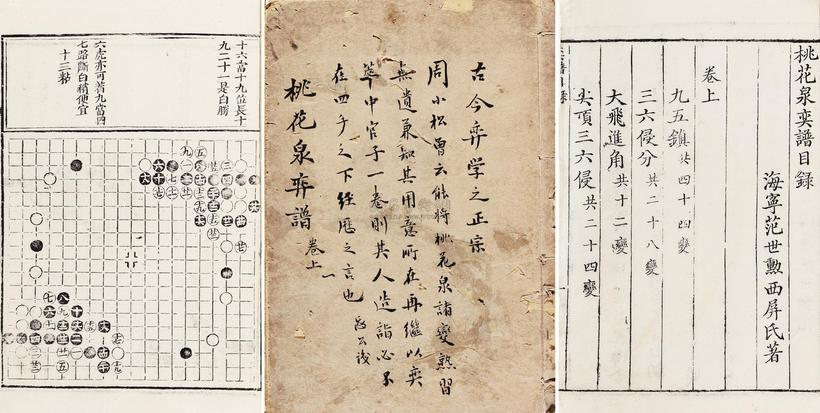 十六當十九位長十
九二十一是白勝
六虎亦可若九當四
七路斷白稍便宜
十三粘
古今弈学之正宗
周小松曾云能将桃花泉諸變熟習
無遺兼知其用意所在再繼以弈
萃中官子一卷則其人造詣必不
在四子之下经歷之言也
桃花泉弈譜
卷上
桃花泉奕譜目録
海寧范世勲西屏氏著
卷上
九五鎮共四十四變
三六侵分共二十八變
大飛進角共十二變
尖頂三六侵共二十四變